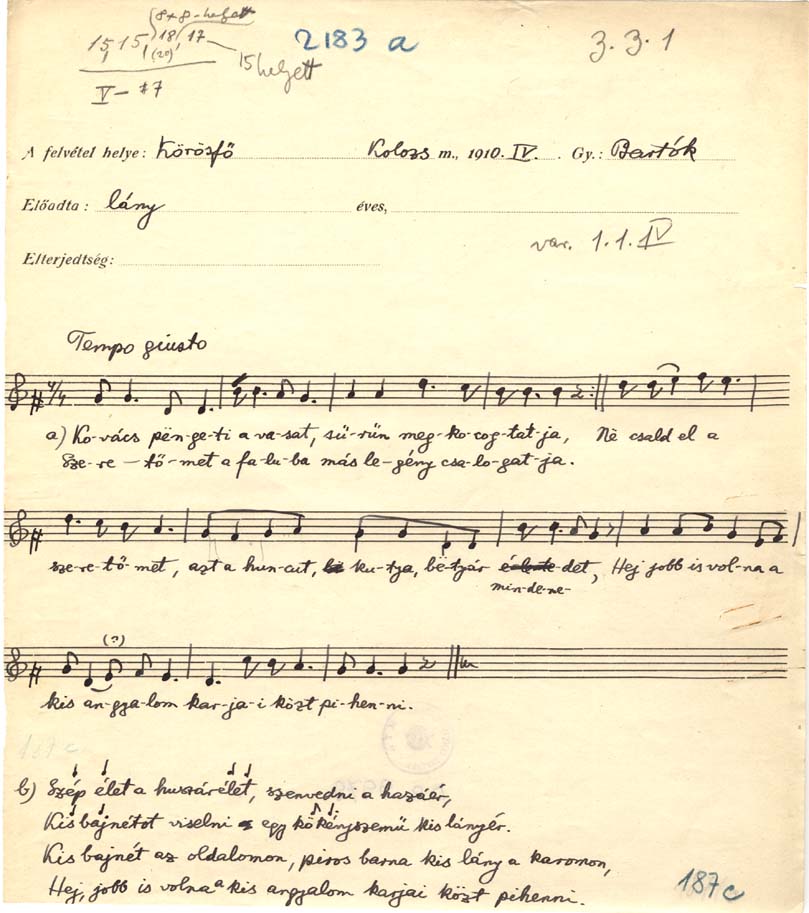 (8+8-helyett
1515 18 17
(20)
15 helyett
V- #7
2183 a
3. 3. 1
A felvétel helye: Körösfő Kolozs m., 1910. IV. Gy.: Bartók
Előadta: lány éves,
var. 1.1.IV
Elterjedtség:
Tempo giusto
a) Ko-vács pën-ge-ti a va-sat, sű-rűn meg-ko-cog-tat-ja, Në csald el a
Sze-re-tő-met a fa-lu-ba más le-gény csa-lo-gat-ja.
sze-re-tő-met, azt a hun-cut, ku-tya, bë-tyár -det, Hej jobb is vol-na a
min-de-ne-
(?)
kis an-gya-lom kar-ja-i közt pi-hen-ni.
187c
b) Szép élet a huszárélet, szenvedni a hazáér,
Kis bajnétot viselni egy kökényszemű kis lányér.
Kis bajnét az oldalomon, piros barna kis lány a karomon,
Hej, jobb is volna a kis angyalom karjai közt pihenni.
187c